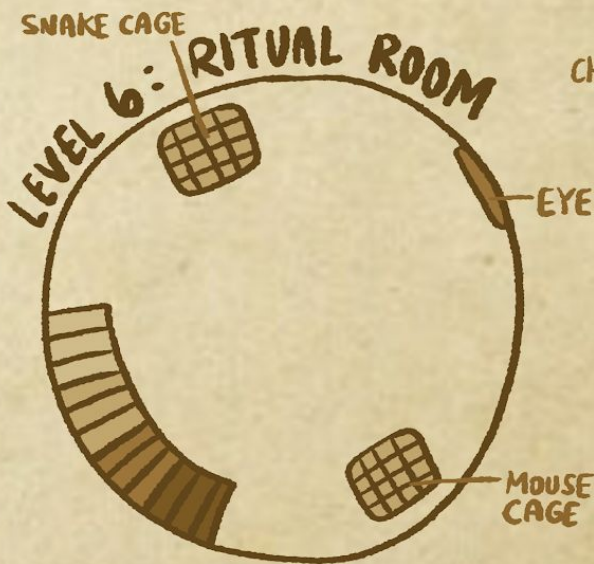 SNAKE CAGE
LEVEL 6: RITUAL ROOM
CH
EYE
MOUSE
CAGE